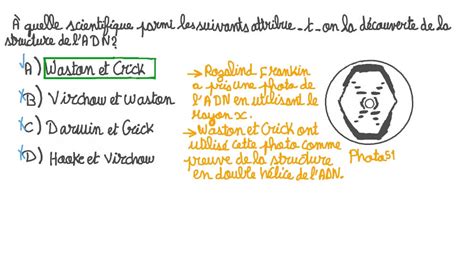 À quelle scientifique parmi les suivants attribue-t-on la découverte de la
structure de l'ADN?
A) Waston et Crick
B) Virchow et Waston
C) Darwin et Crick
D) Hooke et Virchow
→ Rosalind Frankin
a pris une photo de
l'ADN en utilisant le
Rayon x.
→ Waston et Crick ont
utilisé cette photo comme
preuve de la structure
en double hélice de l'ADN.
Photo 51